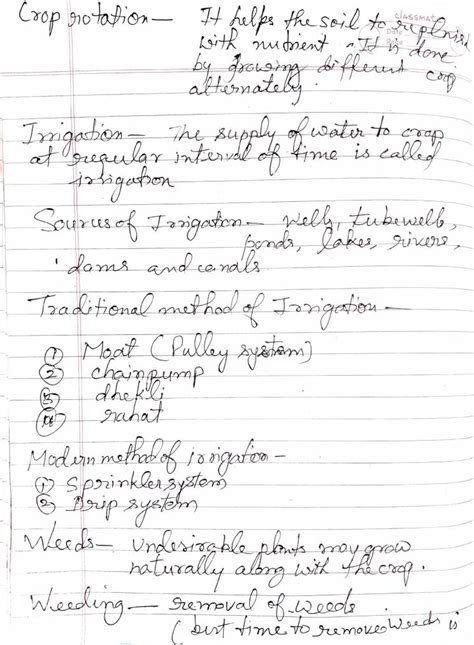 Crop rotation - It helps the soil to replnish
classmate
Date
Page
with nutrient. It is done
by growing different crop
alternately.
Irrigation - The supply of water to crop
at regular interval of time is called
irrigation
Sources of Irrigation - wells, tubewells,
ponds, lakes, rivers,
dams and canals
Traditional method of Irrigation -
① Moat (Pulley system)
② chainpump
③ dhekli
④ rahat
Modern method of irrigation -
① Sprinkler system
② Drip system
Weeds - undesirable plants may grow
naturally along with the crop.
Weeding - removal of weeds
(best time to remove weeds is